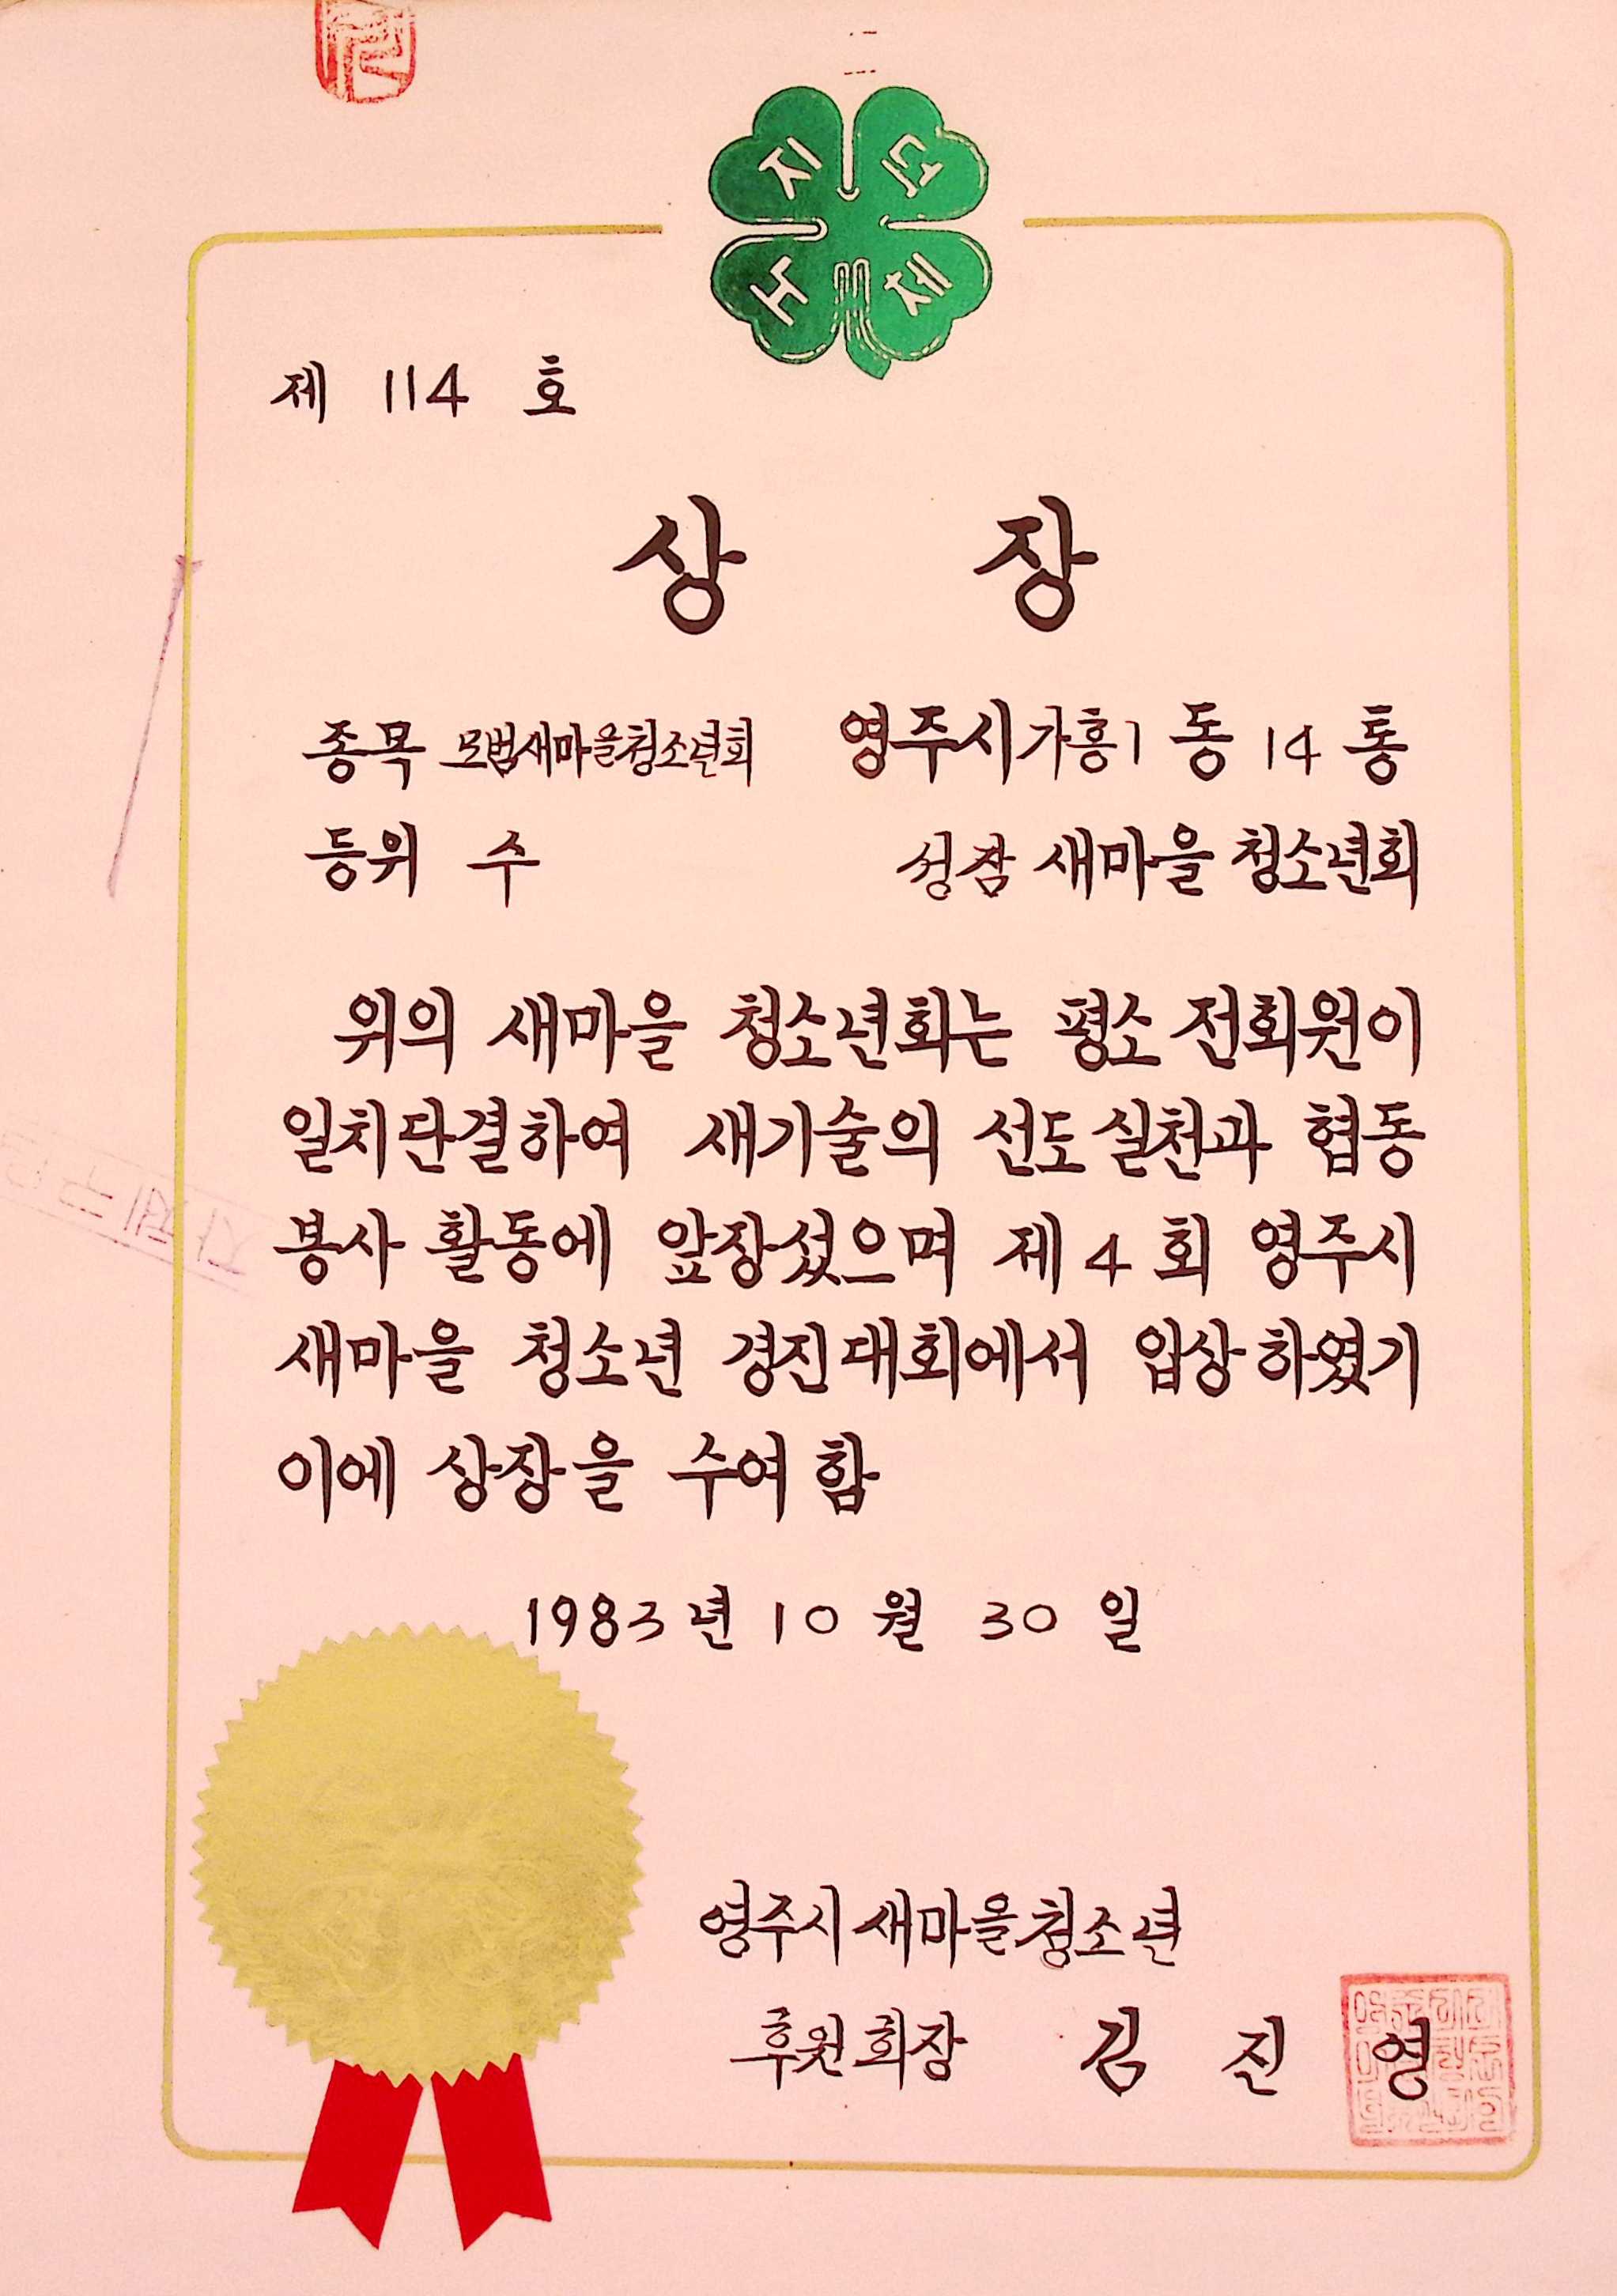 지 덕
노 체
제 114 호
상 장
종목 모범새마을청소년회 영주시가흥1동 14통
등위 수 성잠 새마을 청소년회
위의 새마을 청소년회는 평소 전회원이
일치단결하여 새기술의 선도실천과 협동
봉사 활동에 앞장섰으며 제 4 회 영주시
새마을 청소년 경진대회에서 입상하였기
이에 상장을 수여함
1983년 10월 30일
영주시새마을청소년
후원회장 김 진 영